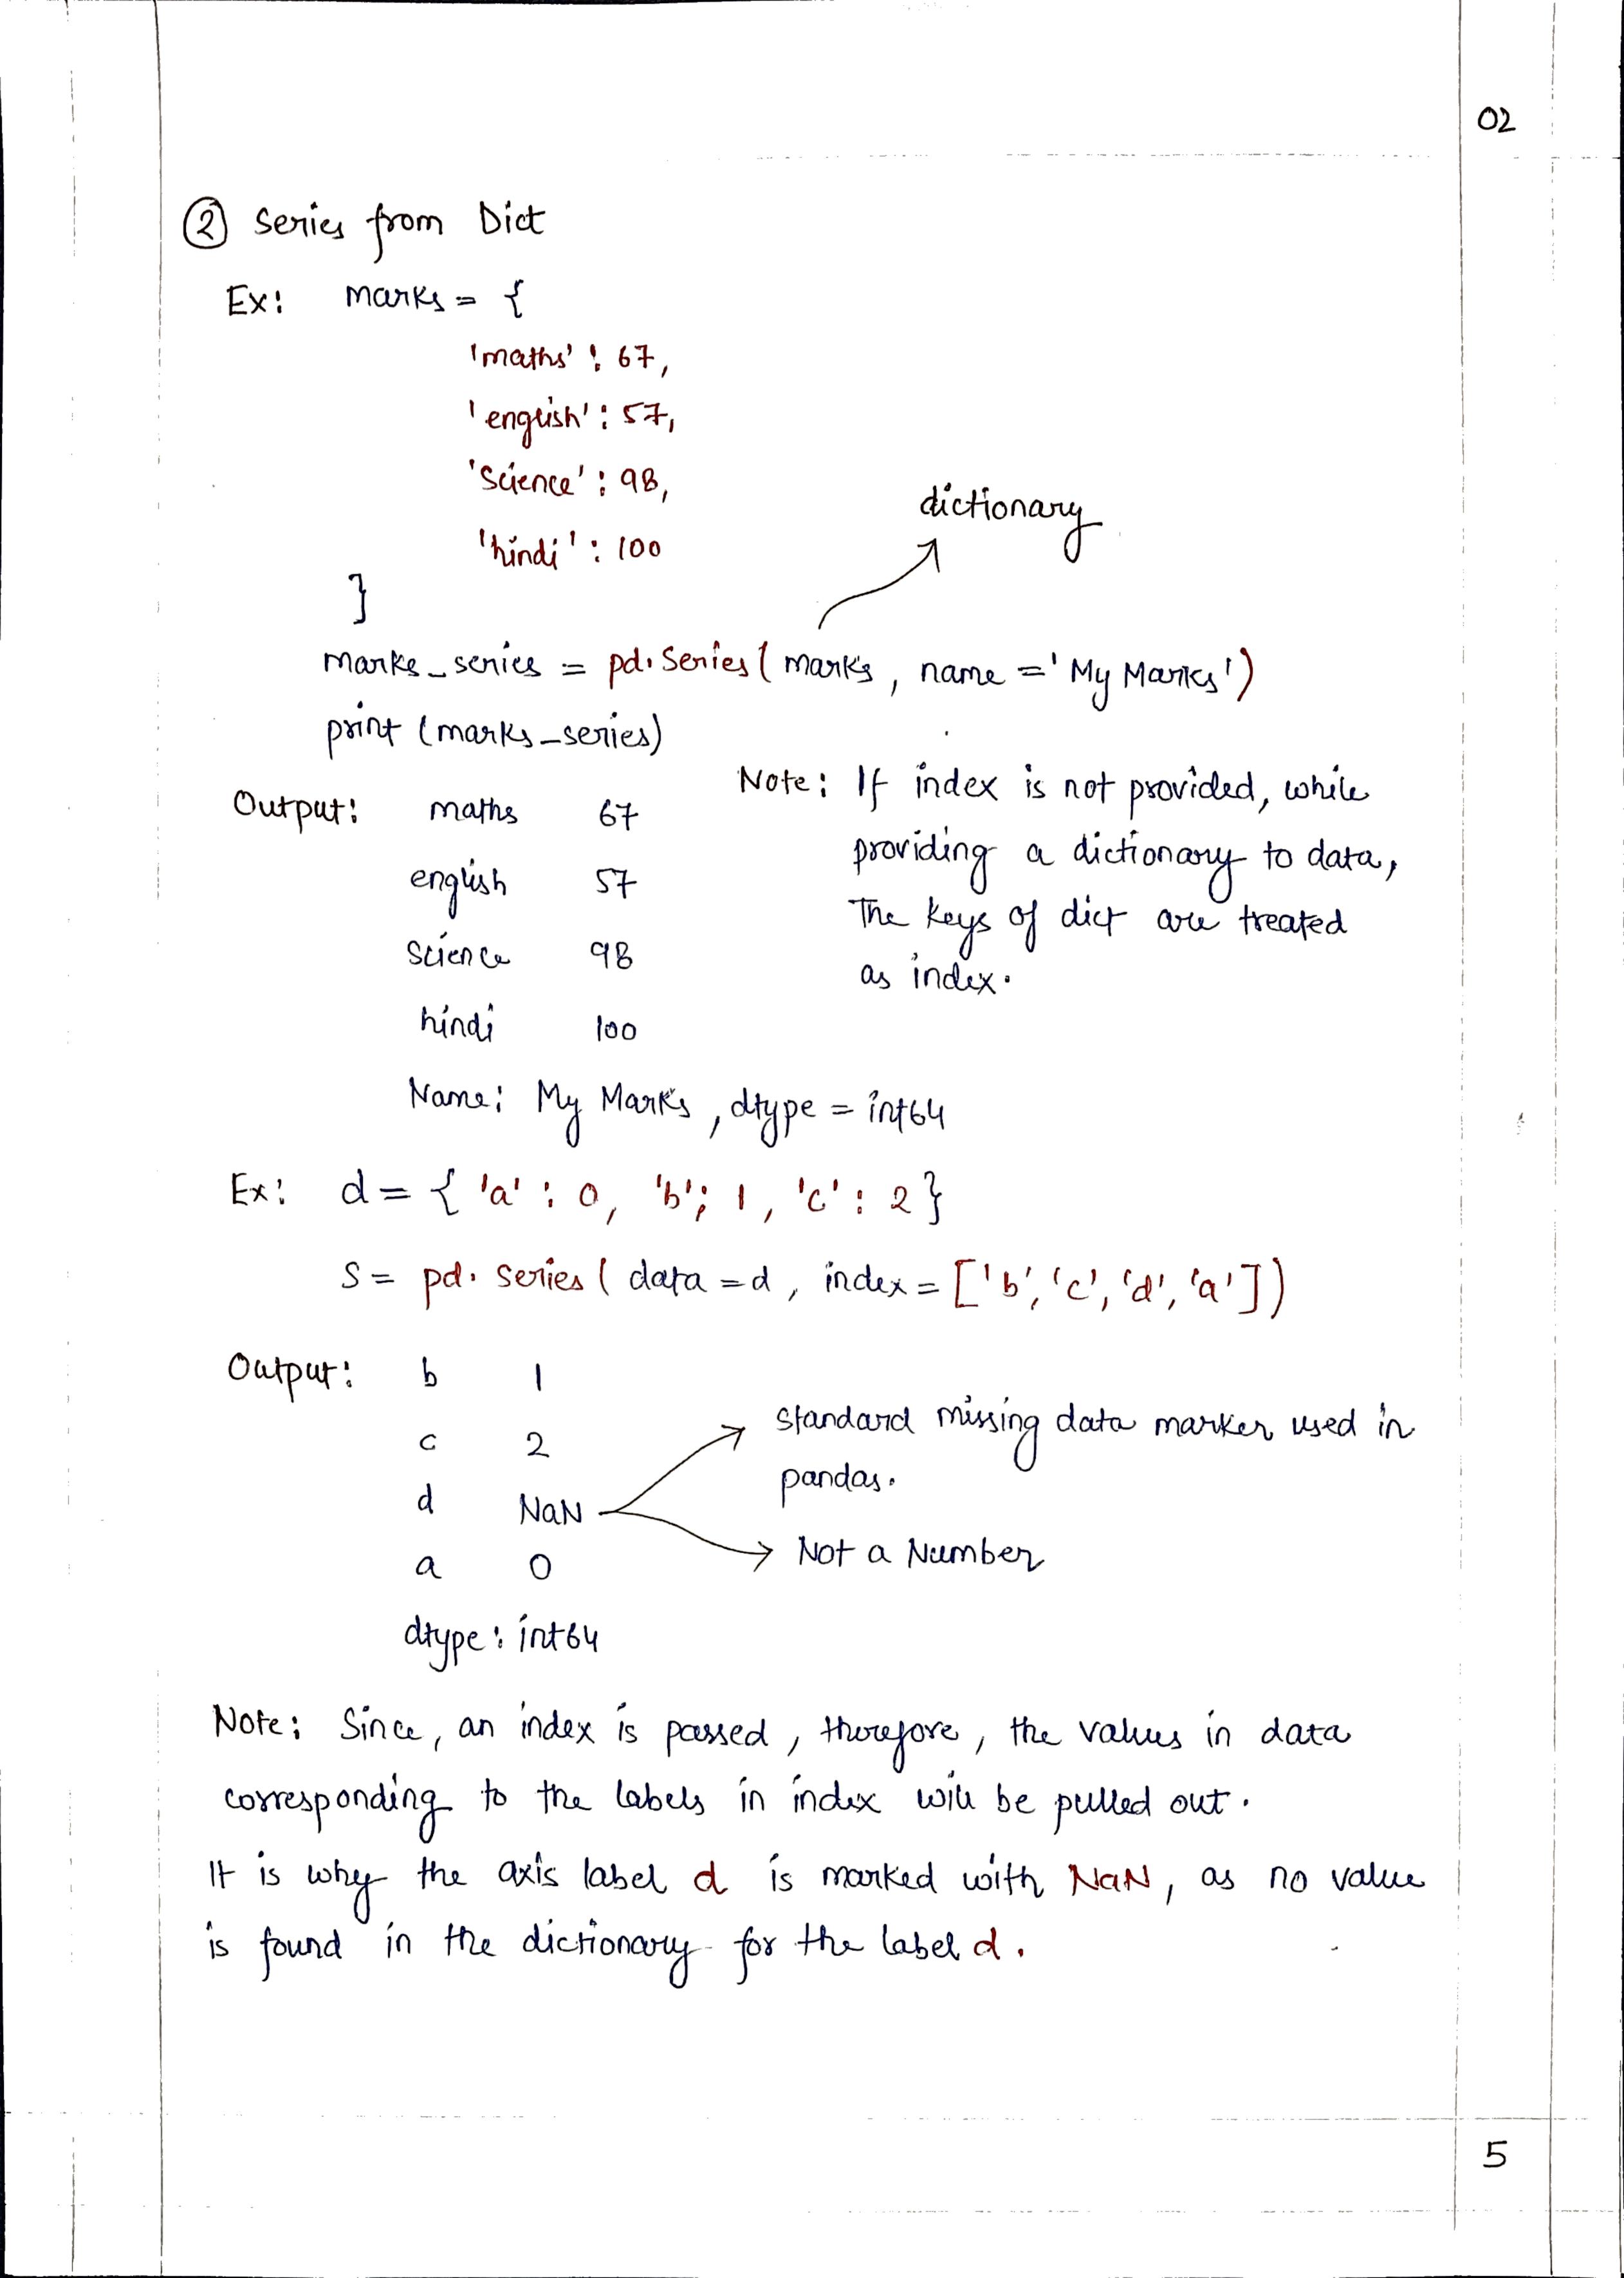 02
② Series from Dict
Ex: marks = {
'maths' : 67,
'english' : 57,
'Science' : 98,
'hindi' : 100
}
dictionary
marks_series = pd.Series( marks, name = 'My Marks')
print (marks_series)
Output: maths 67
english 57
Science 98
hindi 100
Name: My Marks, dtype = int64
Note: If index is not provided, while
providing a dictionary to data,
The keys of dict are treated
as index.
Ex: d = { 'a' : 0, 'b'; 1, 'c' : 2}
S = pd. Series( data = d, index = ['b', 'c', 'd', 'a'])
Output: b 1
c 2
d NaN
a 0
dtype: int64
Standard missing data marker used in
pandas.
Not a Number
Note: Since, an index is passed, therefore, the values in data
corresponding to the labels in index will be pulled out.
It is why the axis label d is marked with NaN, as no value
is found in the dictionary for the label d.
5